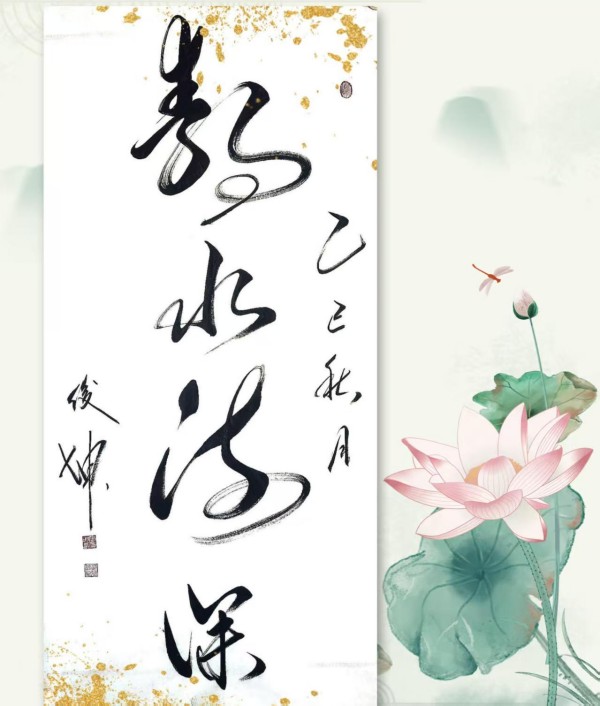 乙巳秋月
静水流深
俊坤